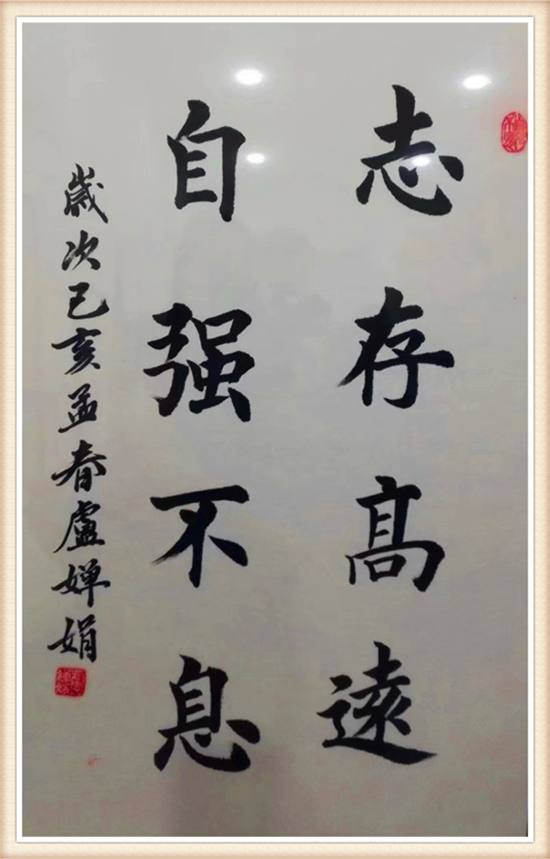 志存高遠
自强不息
歲次己亥孟春盧婵娟